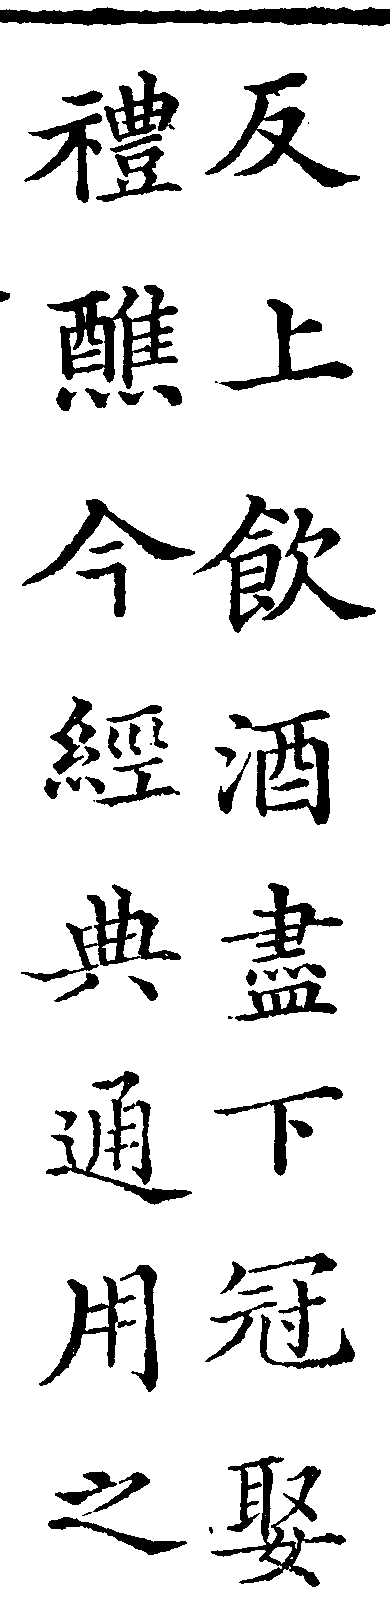 反上飲酒盡下冠娶
禮醮今經典通用之